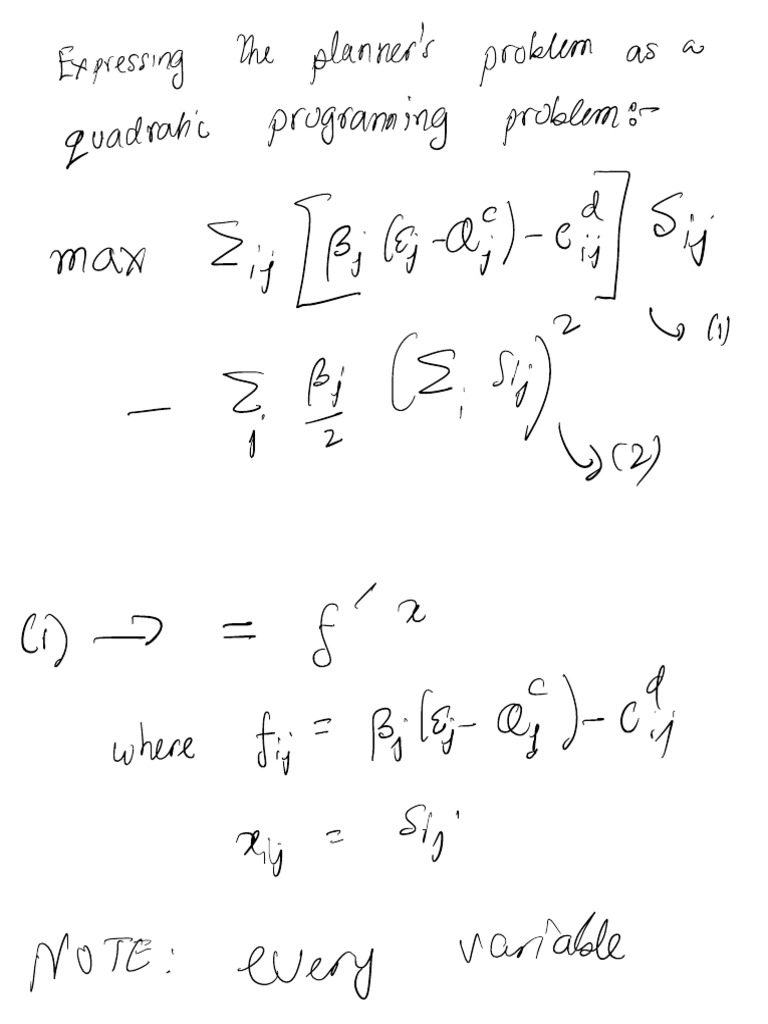 Expressing the planner's problem as a
quadratic programming problem:-
max Σ_{ij} [β_j (ε_j - Q_j^c) - c_{ij}^d] δ_{ij}
↳ (1)
- Σ_j β_j/2 (Σ_i δ_{ij})^2
↳ (2)
(1) → = f' x
where f_{ij} = β_j (ε_j - Q_j^c) - c_{ij}^d
x_{ij} = δ_{ij}
NOTE: every variable